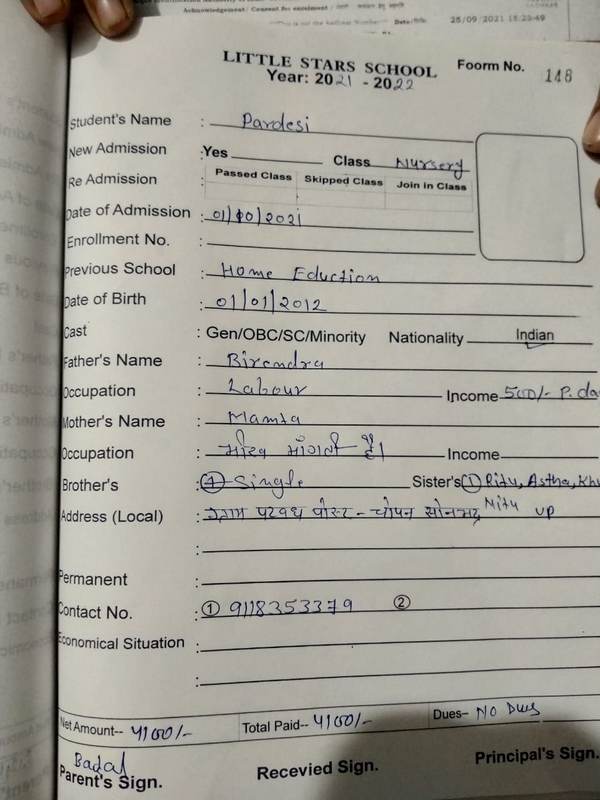 Acknowledgement / Consent for enrolment /
Date/
25/09/2021 15:29:49
LITTLE STARS SCHOOL
Foorm No. 148
Year: 2021 - 2022
Student's Name : Pardesi
New Admission : Yes Class Nursery
Re Admission : Passed Class Skipped Class Join in Class
Date of Admission : 01/10/2021
Enrollment No. :
Previous School : Home Eduction
Date of Birth : 01/01/2012
Cast : Gen/OBC/SC/Minority Nationality Indian
Father's Name : Birendra
Occupation : Labour Income 500/- P. da
Mother's Name : Mamta
Occupation : भीख मांगती है। Income
Brother's : Single Sister's ① Ritu, Astha, Khu
Nitu
Address (Local) : ग्राम पटवध पोस्ट - चोपन सोनभद्र UP
:
Permanent :
Contact No. : ① 9118353379 ②
Economical Situation :
:
Net Amount-- 4100/- Total Paid-- 4100/- Dues-- No Dws
Badal
Parent's Sign. Recevied Sign. Principal's Sign.